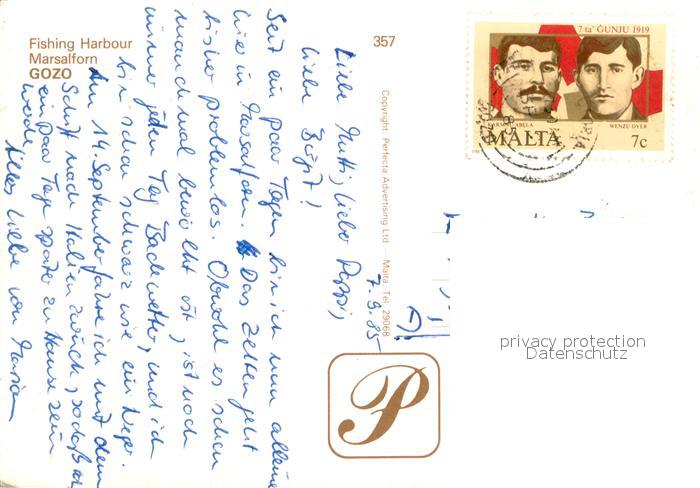 Fishing Harbour
Marsalforn
GOZO
357
Copyright: Perfecta Advertising Ltd - Malta. Tel 29068
7 ta' ĠUNJU 1919
KARMNU ABELA
WENZU DYER
MALTA 7c
7.9.85
Liebe Mutti, lieber Pappi,
liebe Birgit!
Seit ein paar Tagen bin ich nun alleine
hier in Marsalforn. Das Zelten geht
bisher problemlos. Obwohl es schon
manchmal bewölkt ist, ist noch
immer jeden Tag Badewetter, und ich
bin schon schwarz wie ein Neger.
Am 14. September fahre ich mit dem
Schiff nach Italien zurück, sodaß ich
ein paar Tage später zu Hause sein
werde. Alles Liebe von
P
privacy protection
Datenschutz